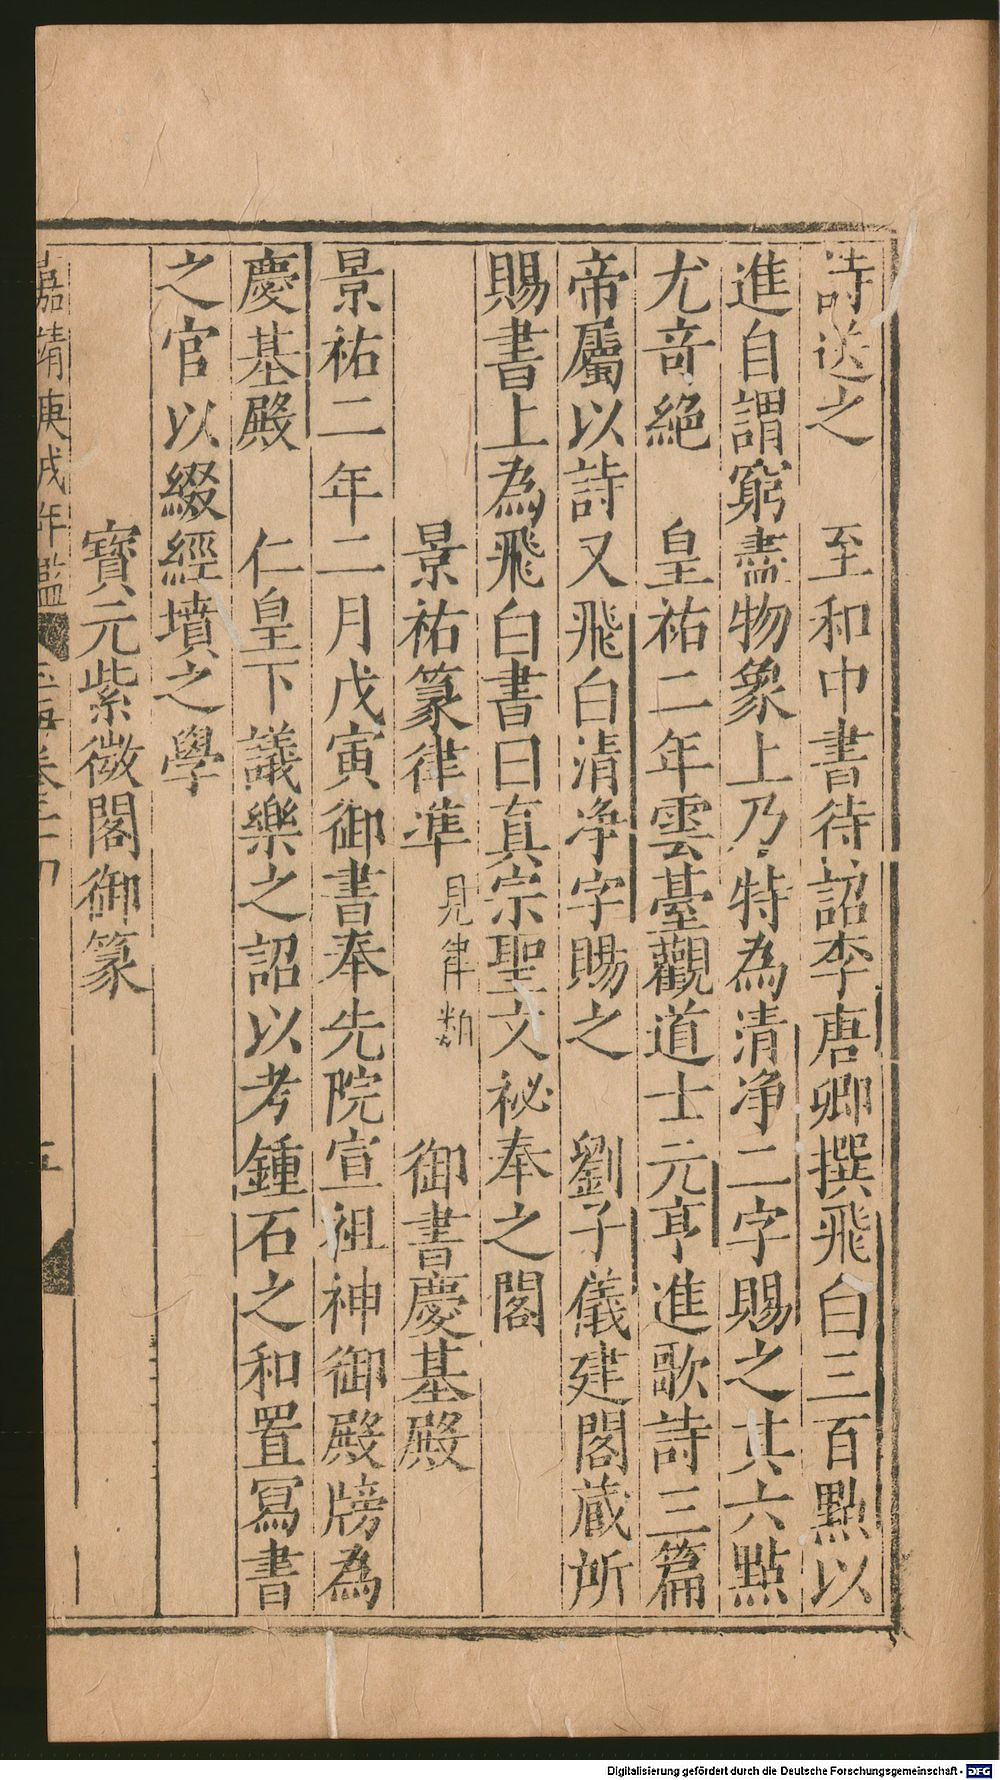 詩送之　至和中書待詔李唐卿撰飛白三百點以
進自謂窮盡物象上乃特為清净二字賜之其六點
尤奇絶　皇祐二年雲臺觀道士元亨進歌詩三篇
帝屬以詩又飛白清净字賜之　劉子儀建閣蔵所
賜書上為飛白書曰真宗聖文祕奉之閣
景祐篆律凖見律類　御書慶基殿
景祐二年二月戊寅御書奉先院宣祖神御殿牓為
慶基殿　仁皇下議樂之詔以考鍾石之和置冩書
之官以綴經墳之學
寳元紫微閣御篆
嘉靖庚戌年
玉海卷三十
五
Digitalisierung gefördert durch die Deutsche Forschungsgemeinschaft - DFG